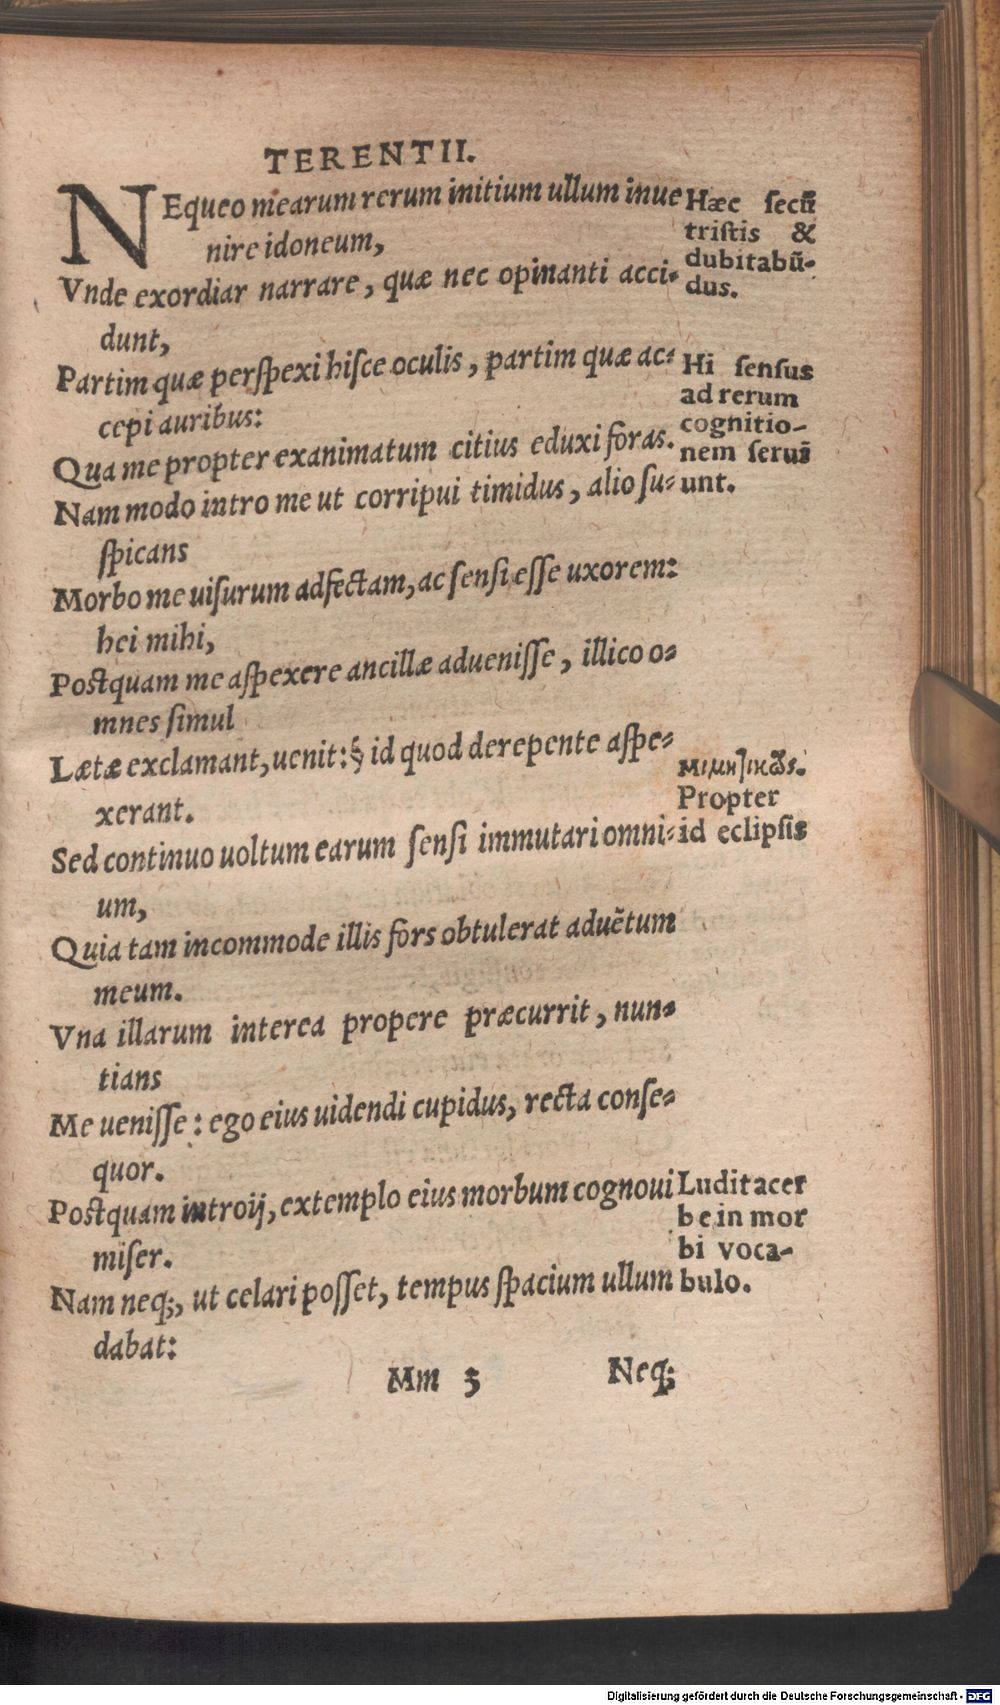 TERENTII.
NEqueo mearum rerum initium ullum inue
nire idoneum,
Vnde exordiar narrare, quæ nec opinanti acci⸗
dunt,
Partim quæ perſpexi hiſce oculis, partim quæ ac⸗
cepi auribus:
Qua me propter exanimatum citius eduxi foras.
Nam modo intro me ut corripui timidus, alio ſu⸗
ſpicans
Morbo me uiſurum adfectam, ac ſenſi eſſe uxorem:
hei mihi,
Postquam me aſpexere ancillæ adueniſſe, illico o⸗
mnes ſimul
Lætæ exclamant, uenit: § id quod derepente aſpe⸗
xerant.
Sed continuo uoltum earum ſenſi immutari omni⸗
um,
Quia tam incommode illis fors obtulerat aduẽtum
meum.
Vna illarum interea propere præcurrit, nun⸗
tians
Me ueniſſe: ego eius uidendi cupidus, recta conſe⸗
quor.
Postquam introij, extemplo eius morbum cognoui
miſer.
Nam neq;, ut celari poſſet, tempus ſpacium ullum
dabat:
Mm 3 Neq;
Hæc ſecũ
triſtis &
dubitabũ-
dus.
Hi ſenſus
ad rerum
cognitio-
nem ſerui
unt.
μιμητικῶς.
Propter
id eclipſis
Ludit acer
be in mor
bi voca-
bulo.
Digitalisierung gefördert durch die Deutsche Forschungsgemeinschaft - DFG